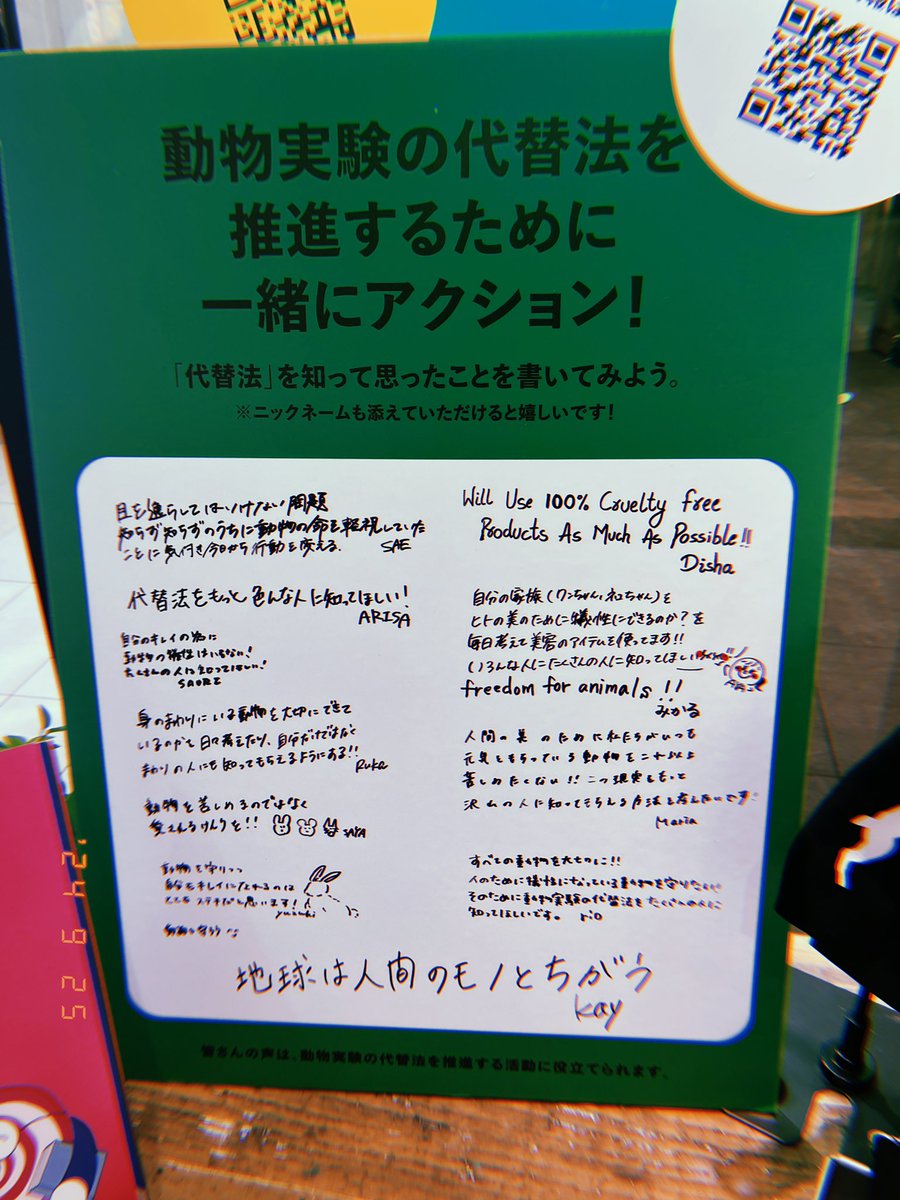 動物実験の代替法を
推進するために
一緒にアクション!
「代替法」を知って思ったことを書いてみよう。
※ニックネームも添えていただけると嬉しいです!
目を逸らしてはいけない問題
知らず知らずのうちに動物の命を軽視していた
ことに気付き今日から行動を変える. SAE
代替法をもっと色んな人に知ってほしい!
ARISA
自分のキレイの為に
動物の犠牲はいらない!
たくさんの人に知ってほしい!
SAORI
身のまわりにいる動物を大切にできて
いるのかを日々考えたり、自分だけではなく
まわりの人にも知ってもらえるようにある!!
Ruka
動物を苦しめるのではなく
!! SAYA
動物を守りつつ
自分をキレイになれるのは
ステキだと思います!
yuzuki
動物を守ろう
Will Use 100% Cruelty free
Products As Much As Possible!!
Disha
自分の家族(ワンちゃん、ネコちゃん)を
ヒトの美のために犠牲にできるのか?を
毎日考えて美容のアイテムを使ってます!!
いろんな人にたくさんの人に知ってほしい
freedom for animals!!
みかる
人間の美のために私たちがいつも
元気をもらっている動物をこれ以上
苦しめたくない!! この現実をもっと
沢山の人に知ってもらえる方法を考えたいです。
Maria
すべての動物を大切に!!
人のために犠牲になっている動物を守りたい
そのために動物実験の代替法をたくさんの人に
知ってほしいです。 rio
地球は人間のモノとちがう
kay
皆さんの声は、動物実験の代替法を推進する活動に役立てられます。
'24 9 25